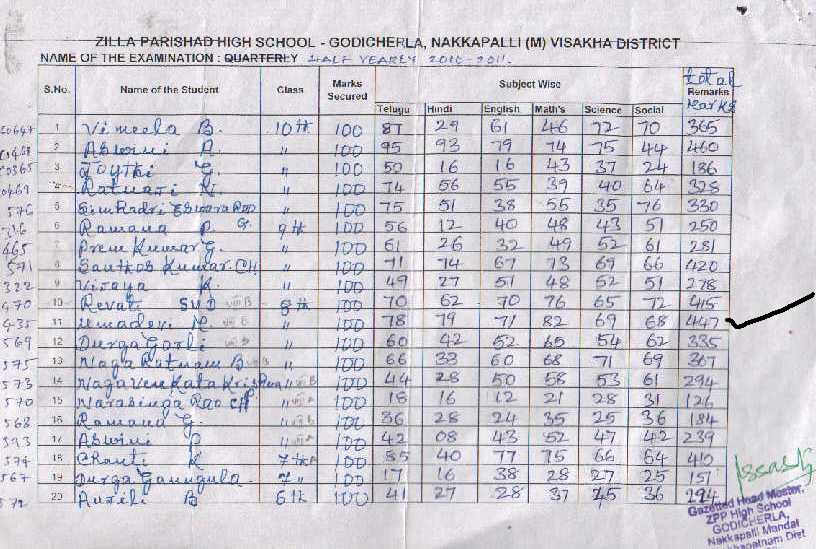 ZILLA PARISHAD HIGH SCHOOL - GODICHERLA, NAKKAPALLI (M) VISAKHA DISTRICT
NAME OF THE EXAMINATION : QUARTERLY HALF YEARLY 2010-2011.
S.No. Name of the Student Class Marks Secured Subject Wise total Remarks marks
Telugu Hindi English Math's Science Social
1 Vimeela B. 10th 100 87 29 61 46 72 70 365
2 Aswini 〃 100 95 93 79 74 75 44 460
3 Joythi G. 〃 100 50 16 16 43 37 24 186
4 Ratnari K. 〃 100 74 56 55 39 40 64 328
576 5 Simhadri Eswara Rao 〃 100 75 51 38 55 35 76 330
6 Ramana P G. 9th 100 56 12 40 48 43 51 250
465 7 Prem Kumar G. 〃 100 61 26 32 49 52 61 281
571 8 Santhos Kumar. CH 〃 100 71 74 67 73 69 66 420
322 9 Vijaya K. 〃 100 49 27 51 48 52 51 278
470 10 Revati SVD VIII B 8th 100 70 62 70 76 65 72 415
435 11 Umadevi M. VIII B 〃 100 78 79 71 82 69 68 447
569 12 Durga Gorli VIII B 〃 100 60 42 52 65 54 62 335
575 13 Naga Ratnam B VIII B 〃 100 66 33 60 68 71 69 367
573 14 Naga Venkata Krishna 〃 VIII B 100 44 28 50 58 53 61 294
570 15 Narasinga Rao CH 〃 VIII A 100 18 16 12 21 28 31 126
568 16 Ramana G. 〃 VIII A 100 36 28 24 35 25 36 184
593 17 Aswini P 〃 VIII A 100 42 08 43 52 47 42 239
574 18 Chanti K 7th A 100 85 40 77 75 66 64 410
567 19 Durga Gaungula 7 〃 100 17 16 38 28 27 25 151
572 20 B 6th 100 41 27 28 37 25 36 294
Gazetted Head Master,
ZPP High School
GODICHERLA,
Nakkapalli Mandal
khapatnam Dist